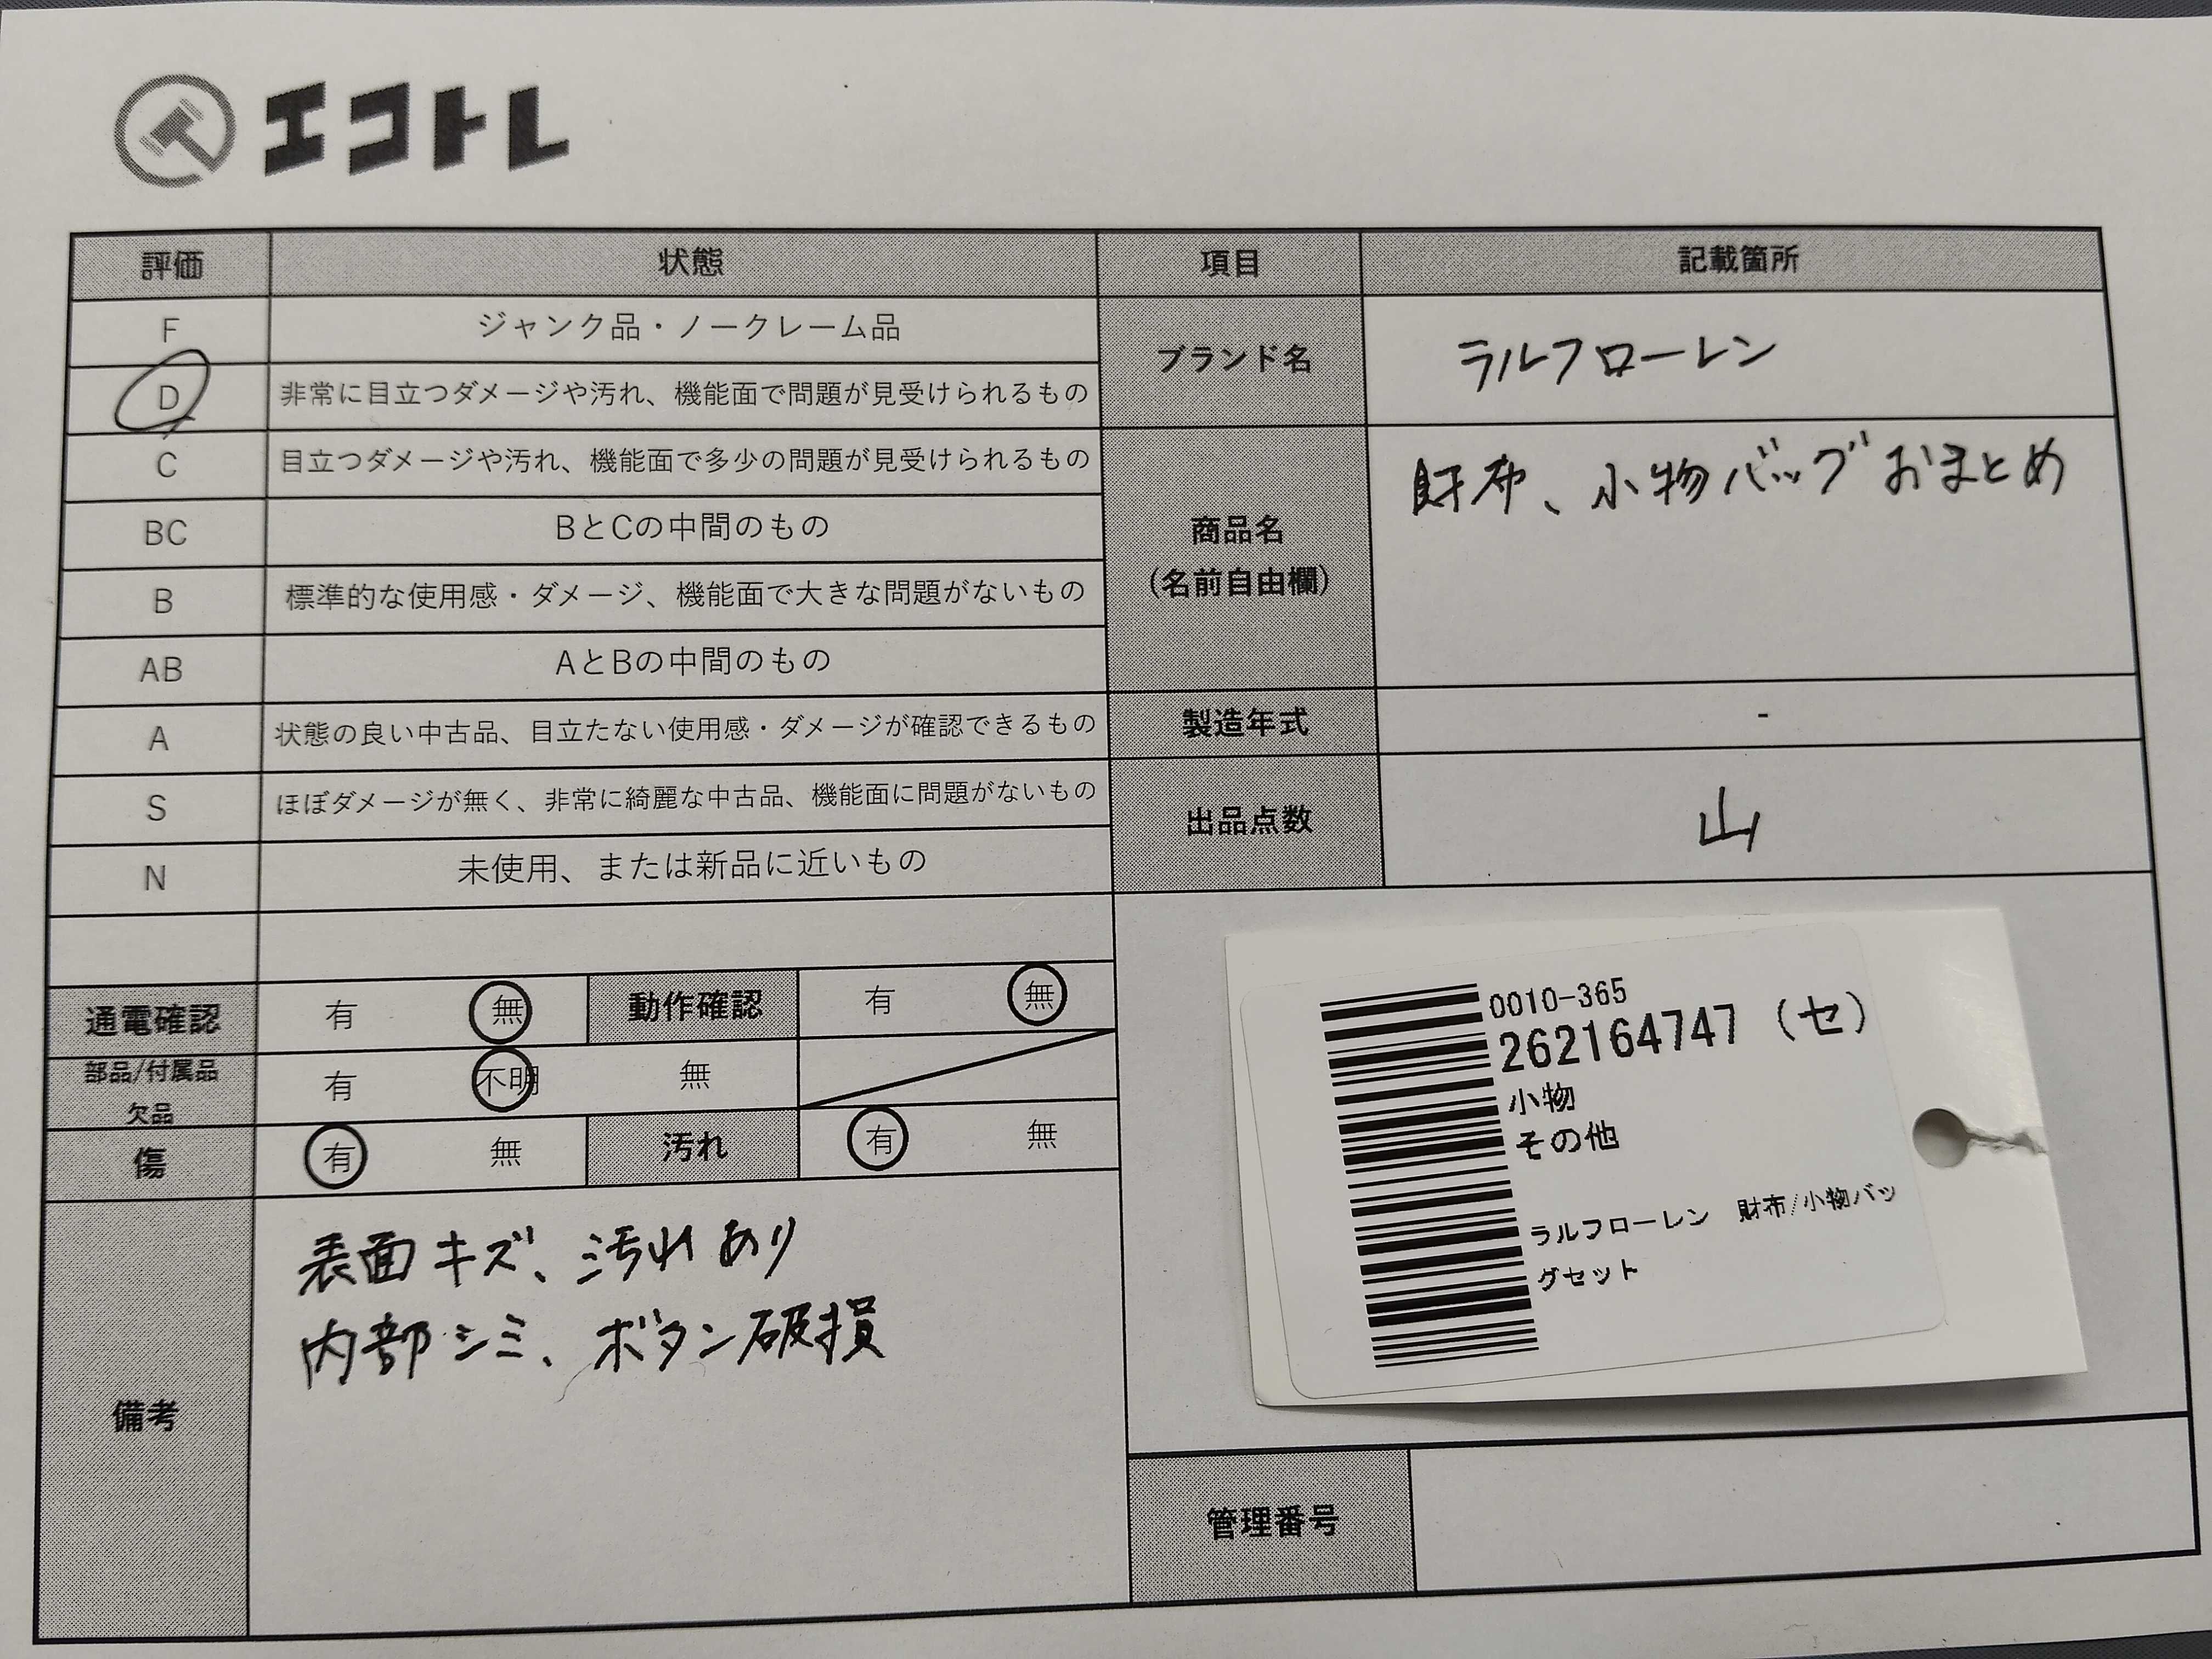 エコトレ
評価 状態 項目 記載箇所
F ジャンク品・ノークレーム品
D 非常に目立つダメージや汚れ、機能面で問題が見受けられるもの
C 目立つダメージや汚れ、機能面で多少の問題が見受けられるもの
BC BとCの中間のもの
B 標準的な使用感・ダメージ、機能面で大きな問題がないもの
AB AとBの中間のもの
A 状態の良い中古品、目立たない使用感・ダメージが確認できるもの
S ほぼダメージが無く、非常に綺麗な中古品、機能面に問題がないもの
N 未使用、または新品に近いもの
ブランド名 ラルフローレン
商品名
(名前自由欄)
財布、小物バッグおまとめ
製造年式 -
出品点数 山
通電確認 有 無 動作確認 有 無
部品/付属品
欠品
有 不明 無
傷 有 無 汚れ 有 無
備考
表面キズ、汚れあり
内部シミ、ボタン破損
0010-365
262164747 (セ)
小物
その他
ラルフローレン 財布/小物バッ
グセット
管理番号